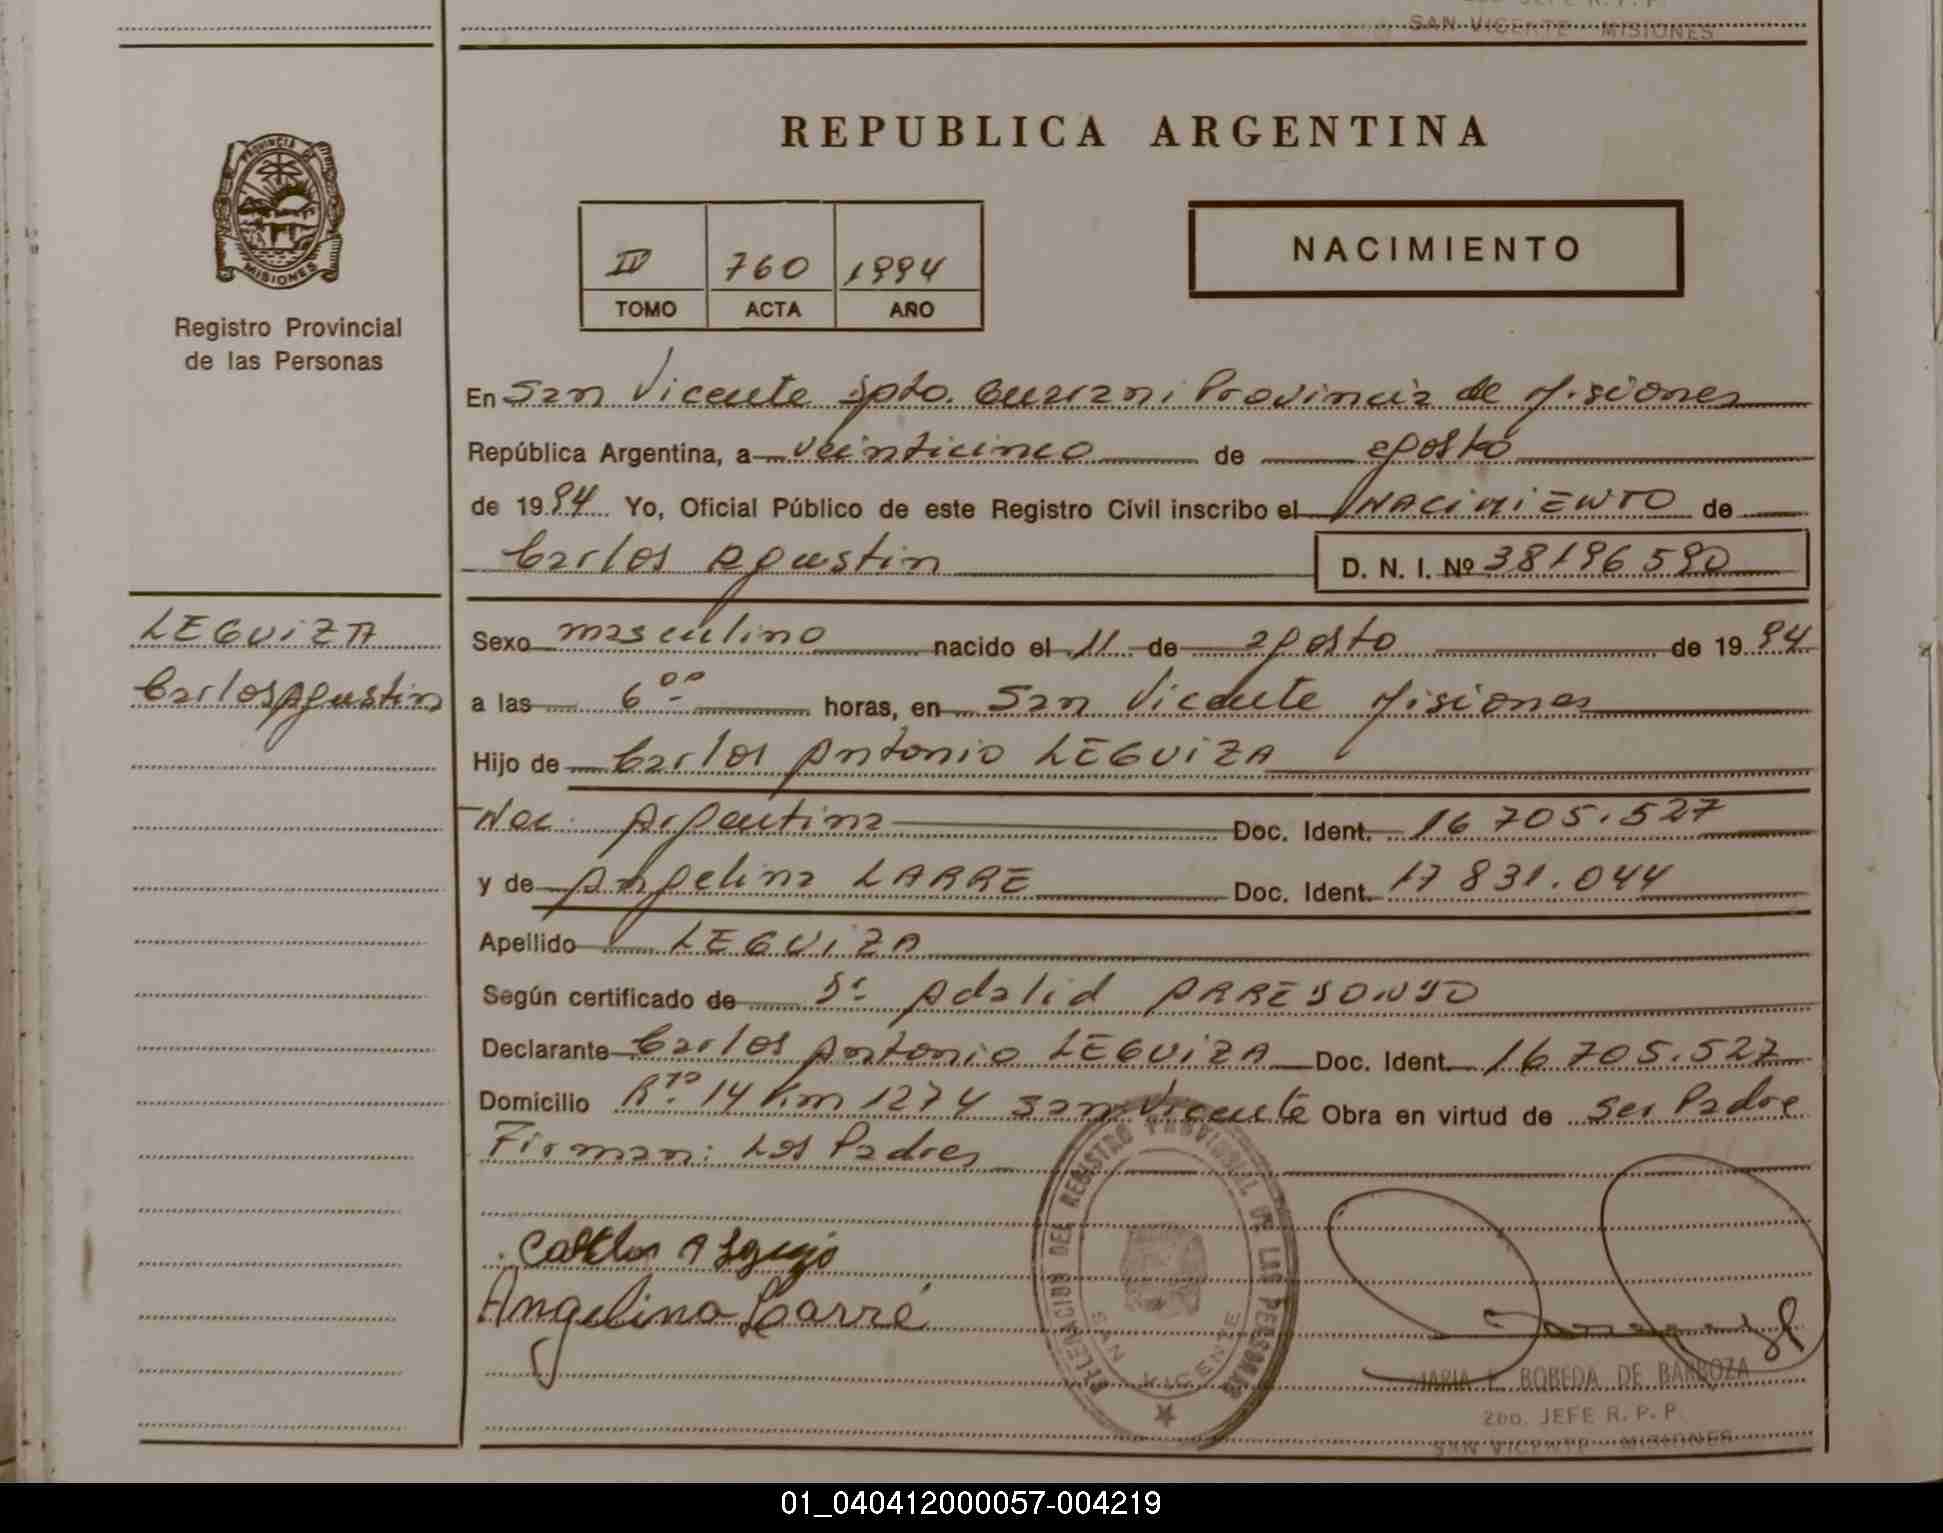 SAN VICENTE MISIONES
PROVINCIA DE
MISIONES
Registro Provincial
de las Personas
REPUBLICA ARGENTINA
IV 760 1994
TOMO ACTA AÑO
NACIMIENTO
En San Vicente Dpto. Guarani Provincia de Misiones
República Argentina, a veinticinco de agosto
de 1994 Yo, Oficial Público de este Registro Civil inscribo el NACIMIENTO de
Carlos Agustin D. N. I. Nº 38196590
LEGUIZA
Carlos Agustin
Sexo masculino nacido el 11 de agosto de 1994
a las 6 oo horas, en San Vicente Misiones
Hijo de Carlos Antonio LEGUIZA
Nac. Argentina Doc. Ident. 16 705.527
y de Angelina LARRE Doc. Ident. 17 831.044
Apellido LEGUIZA
Según certificado de Adalid
Declarante Carlos Antonio LEGUIZA Doc. Ident. 16 705.527
Domicilio Rta 14 Km 1274 San Vicente Obra en virtud de ser Padre
Firman: Los Padres
Angelina Larré
DELEGACION DEL REGISTRO PROVINCIAL DE LAS PERSONAS
SAN VICENTE
MARIA E. BOBEDA DE BARBOZA
2do. JEFE R. P. P.
SAN VICENTE MISIONES
01_040412000057-004219